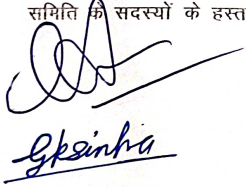 समिति के सदस्यों के हस्त
Gksinha